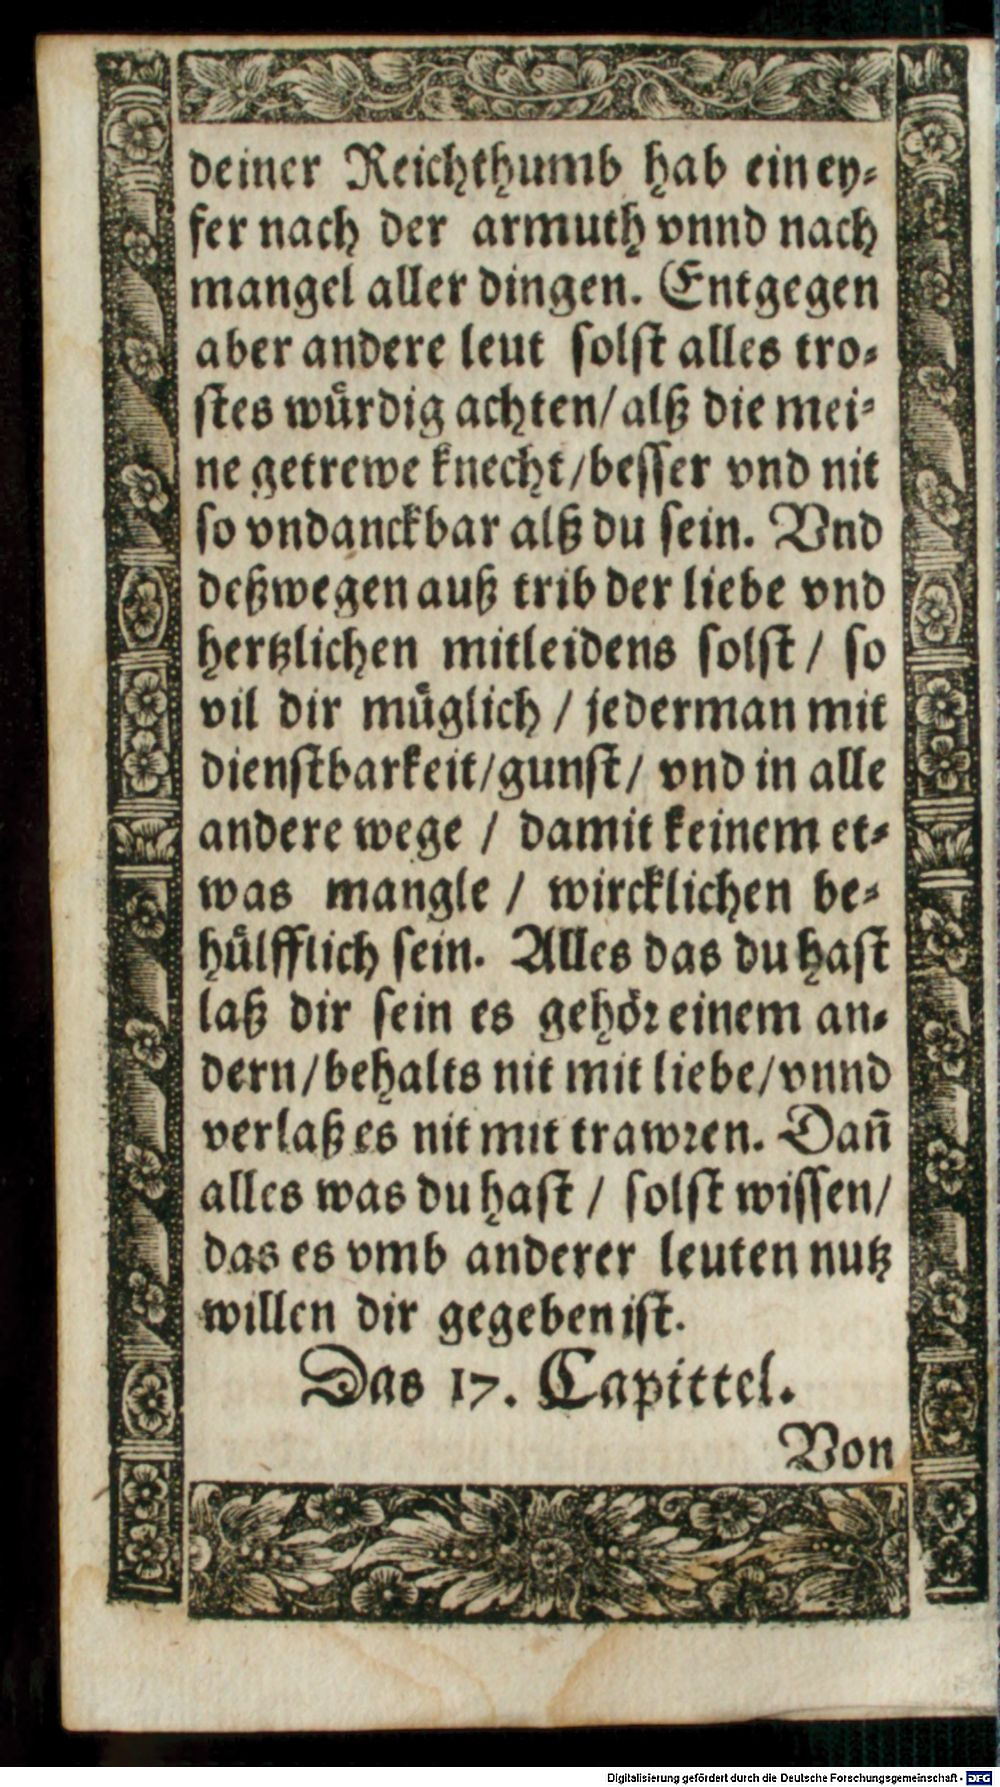 deiner Reichthumb hab ein ey⸗
fer nach der armuth vnnd nach
mangel aller dingen. Entgegen
aber andere leut solst alles tro⸗
stes wuͤrdig achten/ alß die mei⸗
ne getrewe knecht/besser vnd nit
so vndanckbar alß du sein. Vnd
deßwegen auß trib der liebe vnd
hertzlichen mitleidens solst / so
vil dir muͤglich / jederman mit
dienstbarkeit/gunst/ vnd in alle
andere wege / damit keinem et⸗
was mangle / wircklichen be⸗
huͤlfflich sein. Alles das du hast
laß dir sein es gehoͤr einem an⸗
dern/behalts nit mit liebe/vnnd
verlaß es nit mit trawren. Dañ
alles was du hast / solst wissen/
das es vmb anderer leuten nutz
willen dir gegeben ist.
Das 17. Capittel.
Von
Digitalisierung gefördert durch die Deutsche Forschungsgemeinschaft - DFG